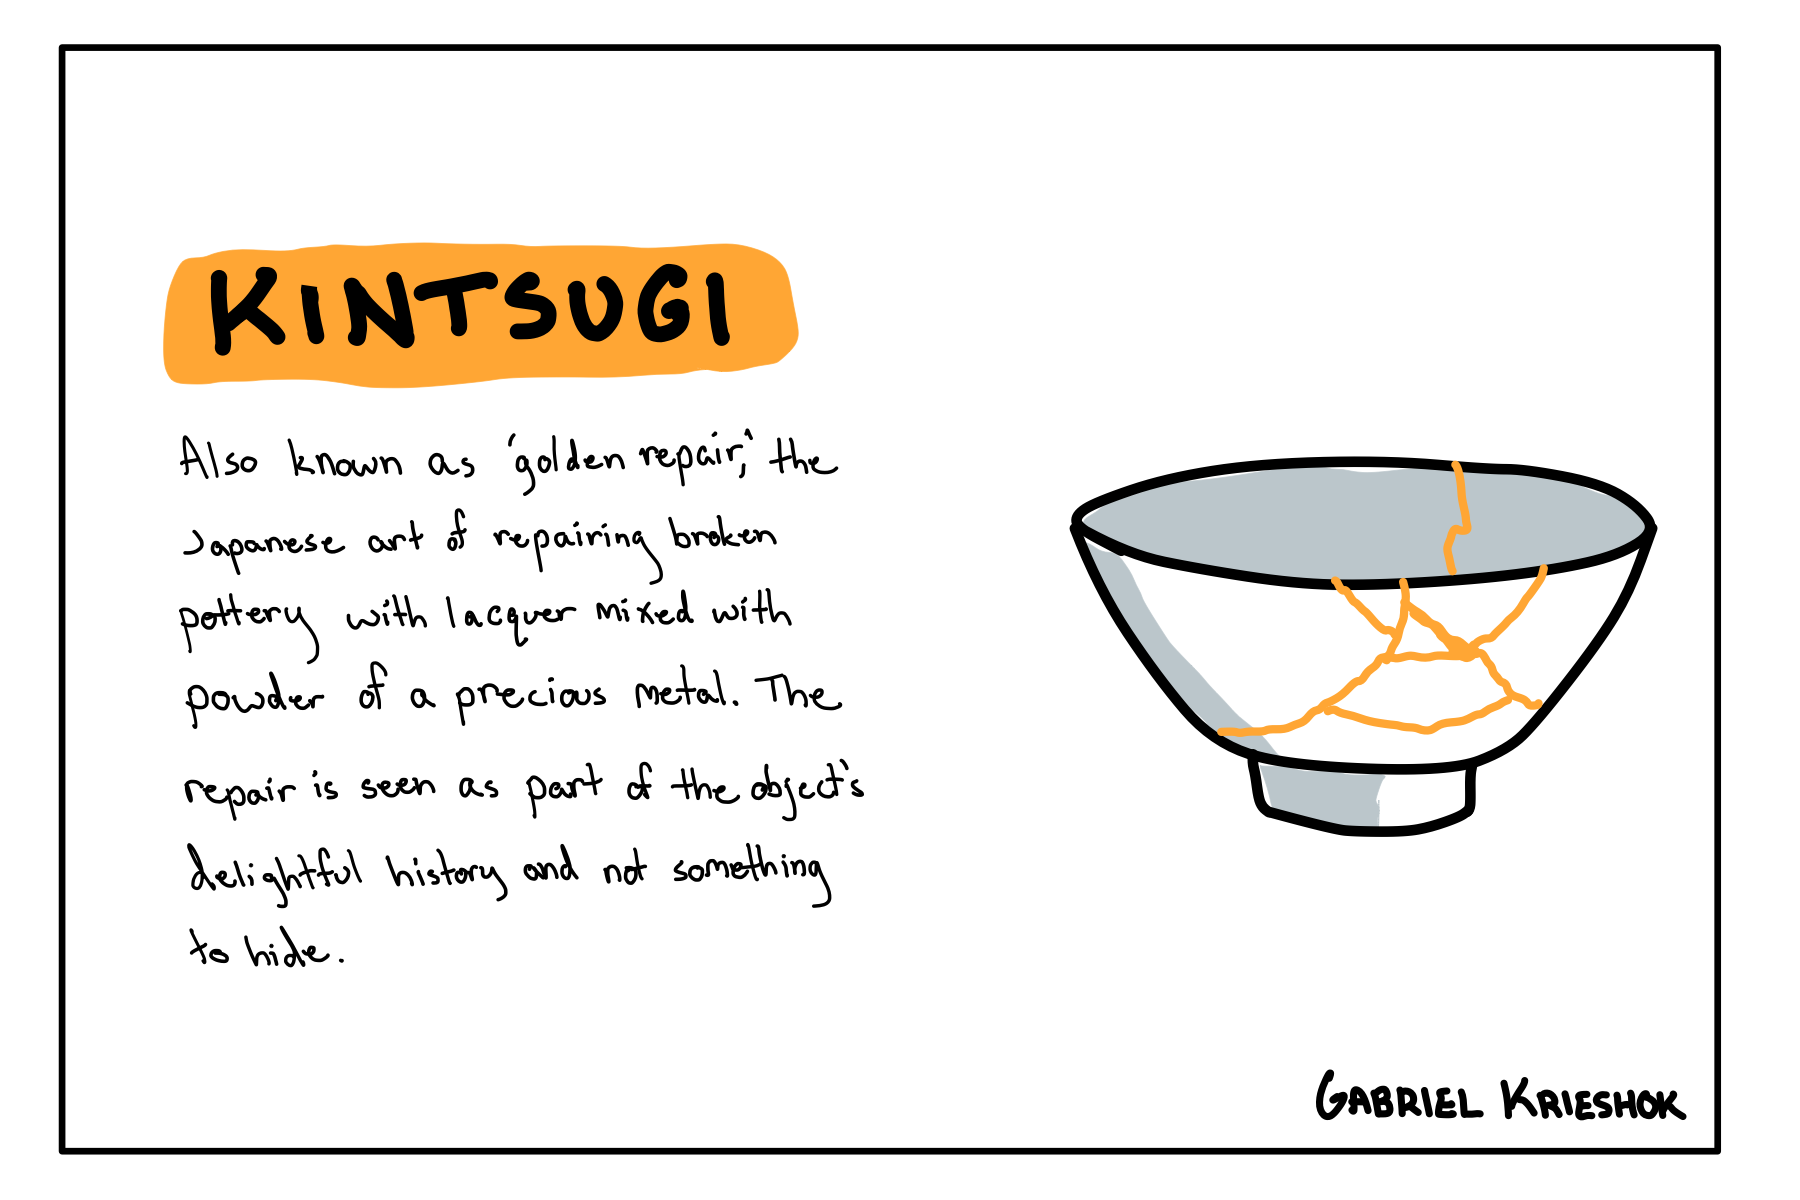 KINTSUGI
Also known as 'golden repair,' the
Japanese art of repairing broken
pottery with lacquer mixed with
powder of a precious metal. The
repair is seen as part of the object's
delightful history and not something
to hide.
GABRIEL KRIESHOK